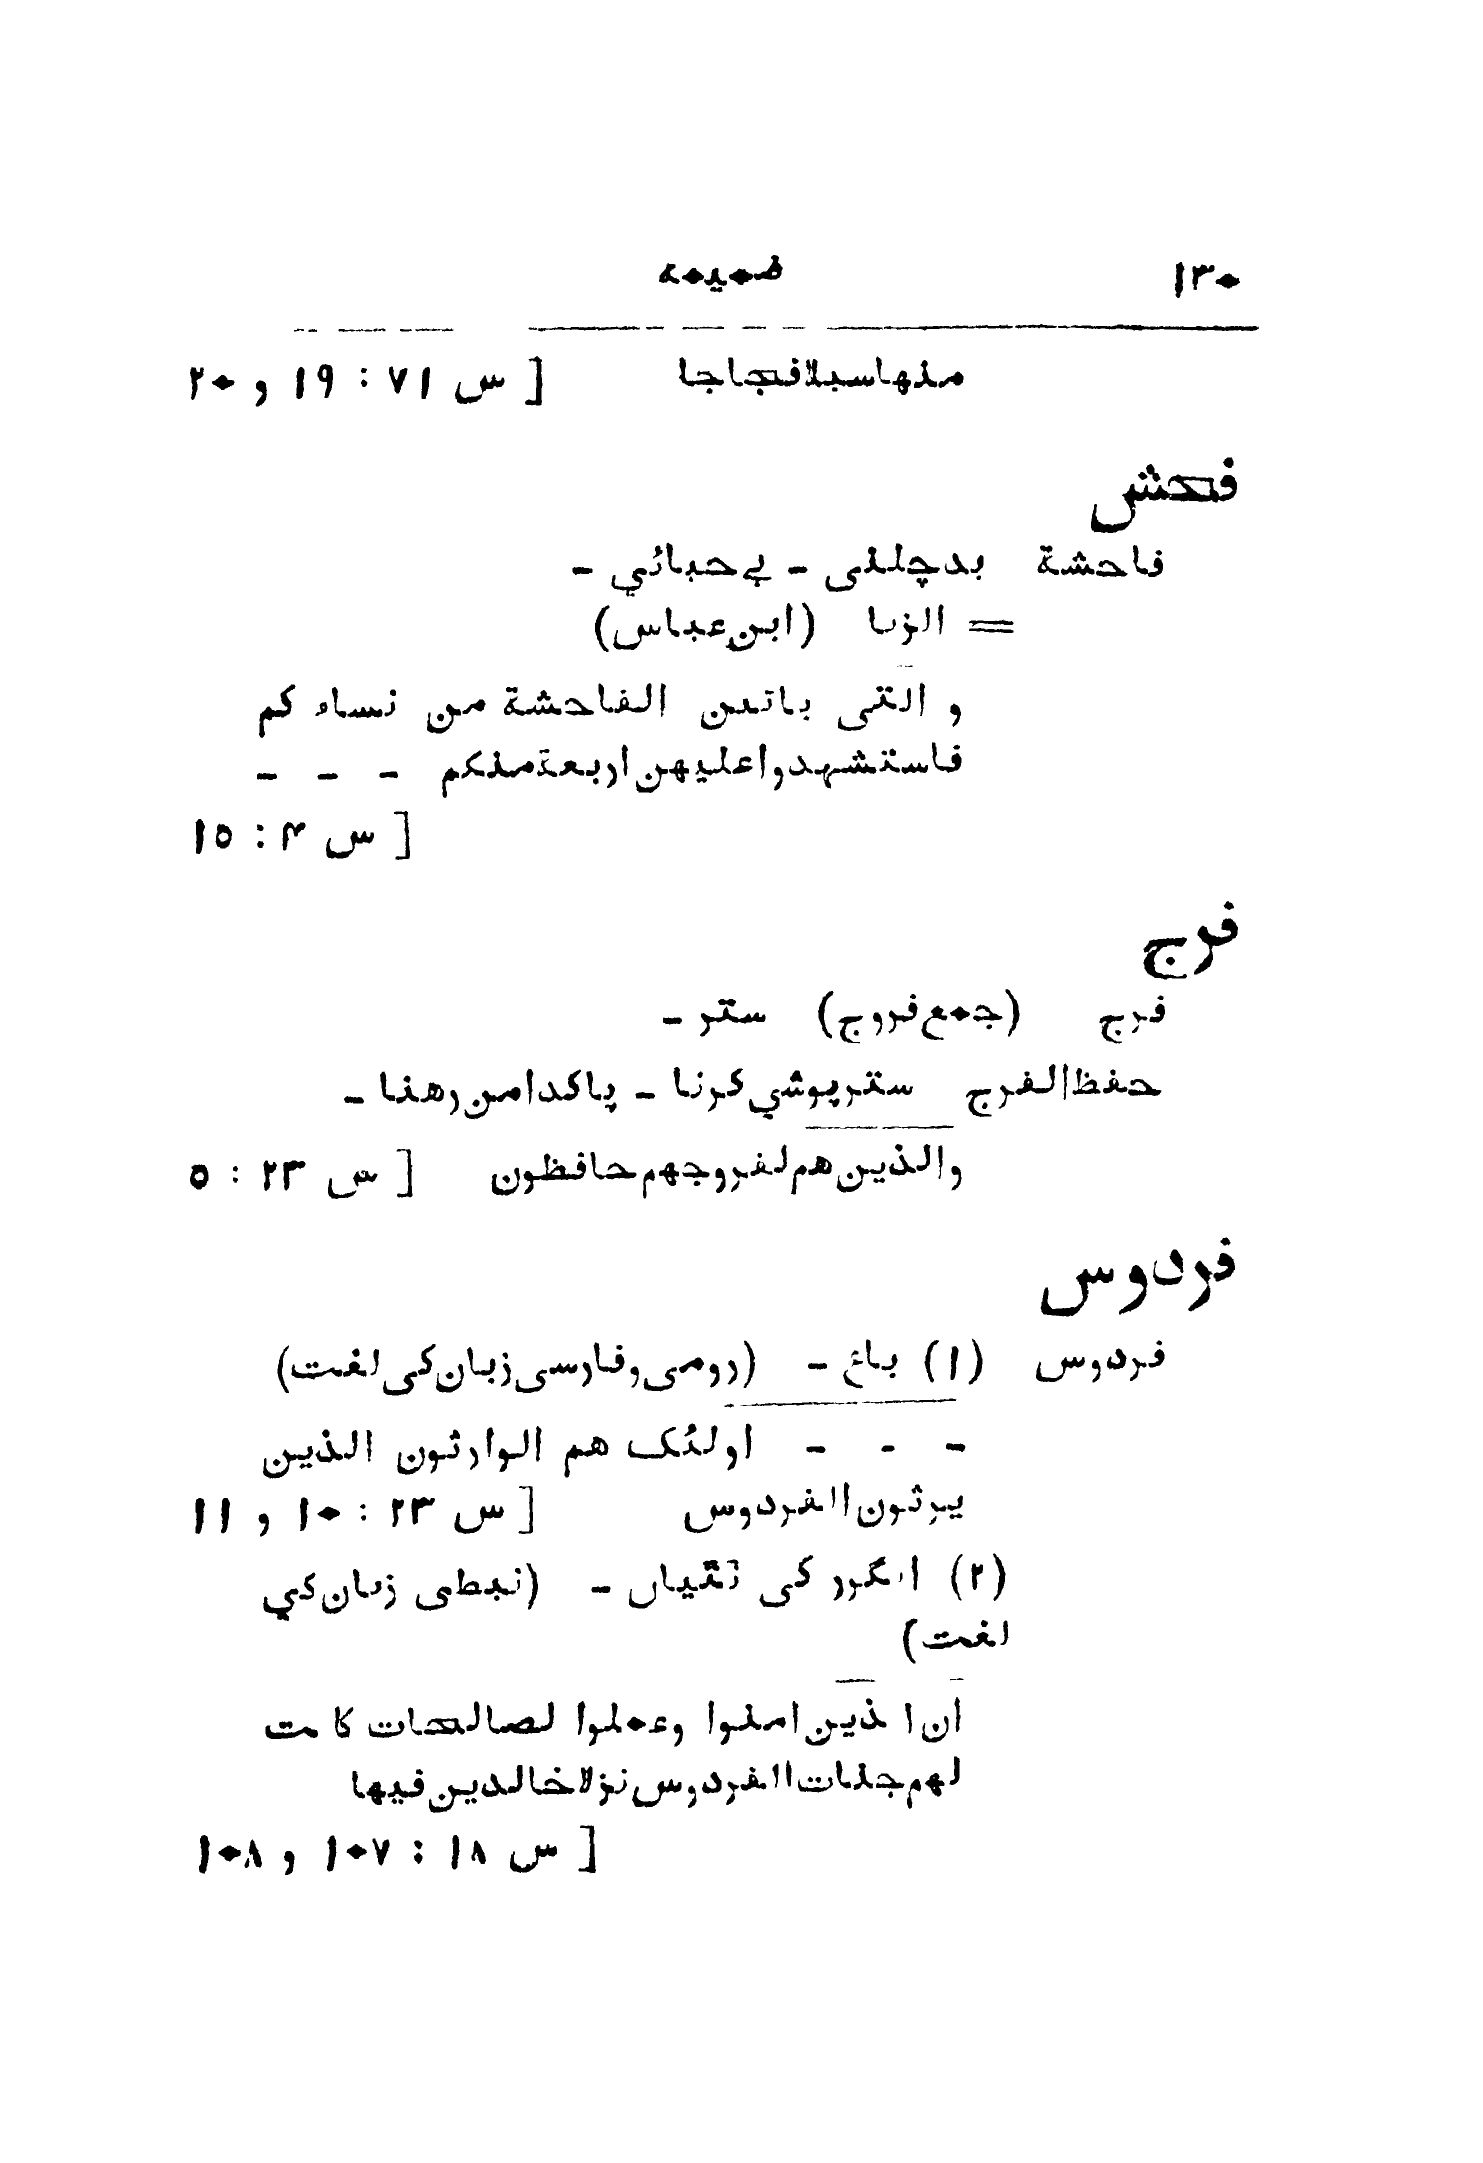 ۱۳۰ ضمیمه
منها سبلا فجاجا [ س ۷۱ : ۱۹ و ۲۰
فحش
فاحشة بدچلنی - بے حیائي -
= الزنا (ابن عباس)
و التی یاتین الفاحشة من نساء کم
فاستشهدوا علیهن اربعة منکم - - -
[ س ۴ : ۱۵
فرج
فرج (جمع فروج) ستر -
حفظ الفرج ستر پوشي کرنا - پاکدامن رهنا -
والذین هم لفروجهم حافظون [ س ۲۳ : ۵
فردوس
فردوس (۱) باغ - (رومی و فارسی زبان کی لغت)
- - - اولئک هم الوارثون الذین
یرثون الفردوس [ س ۲۳ : ۱۰ و ۱۱
(۲) انگور کی ٹٹیاں - (نبطی زبان کي
لغت)
ان الذین امنوا وعملوا لصالحات کانت
لهم جنات الفردوس نزلا خالدین فیها
[ س ۱۸ : ۱۰۷ و ۱۰۸